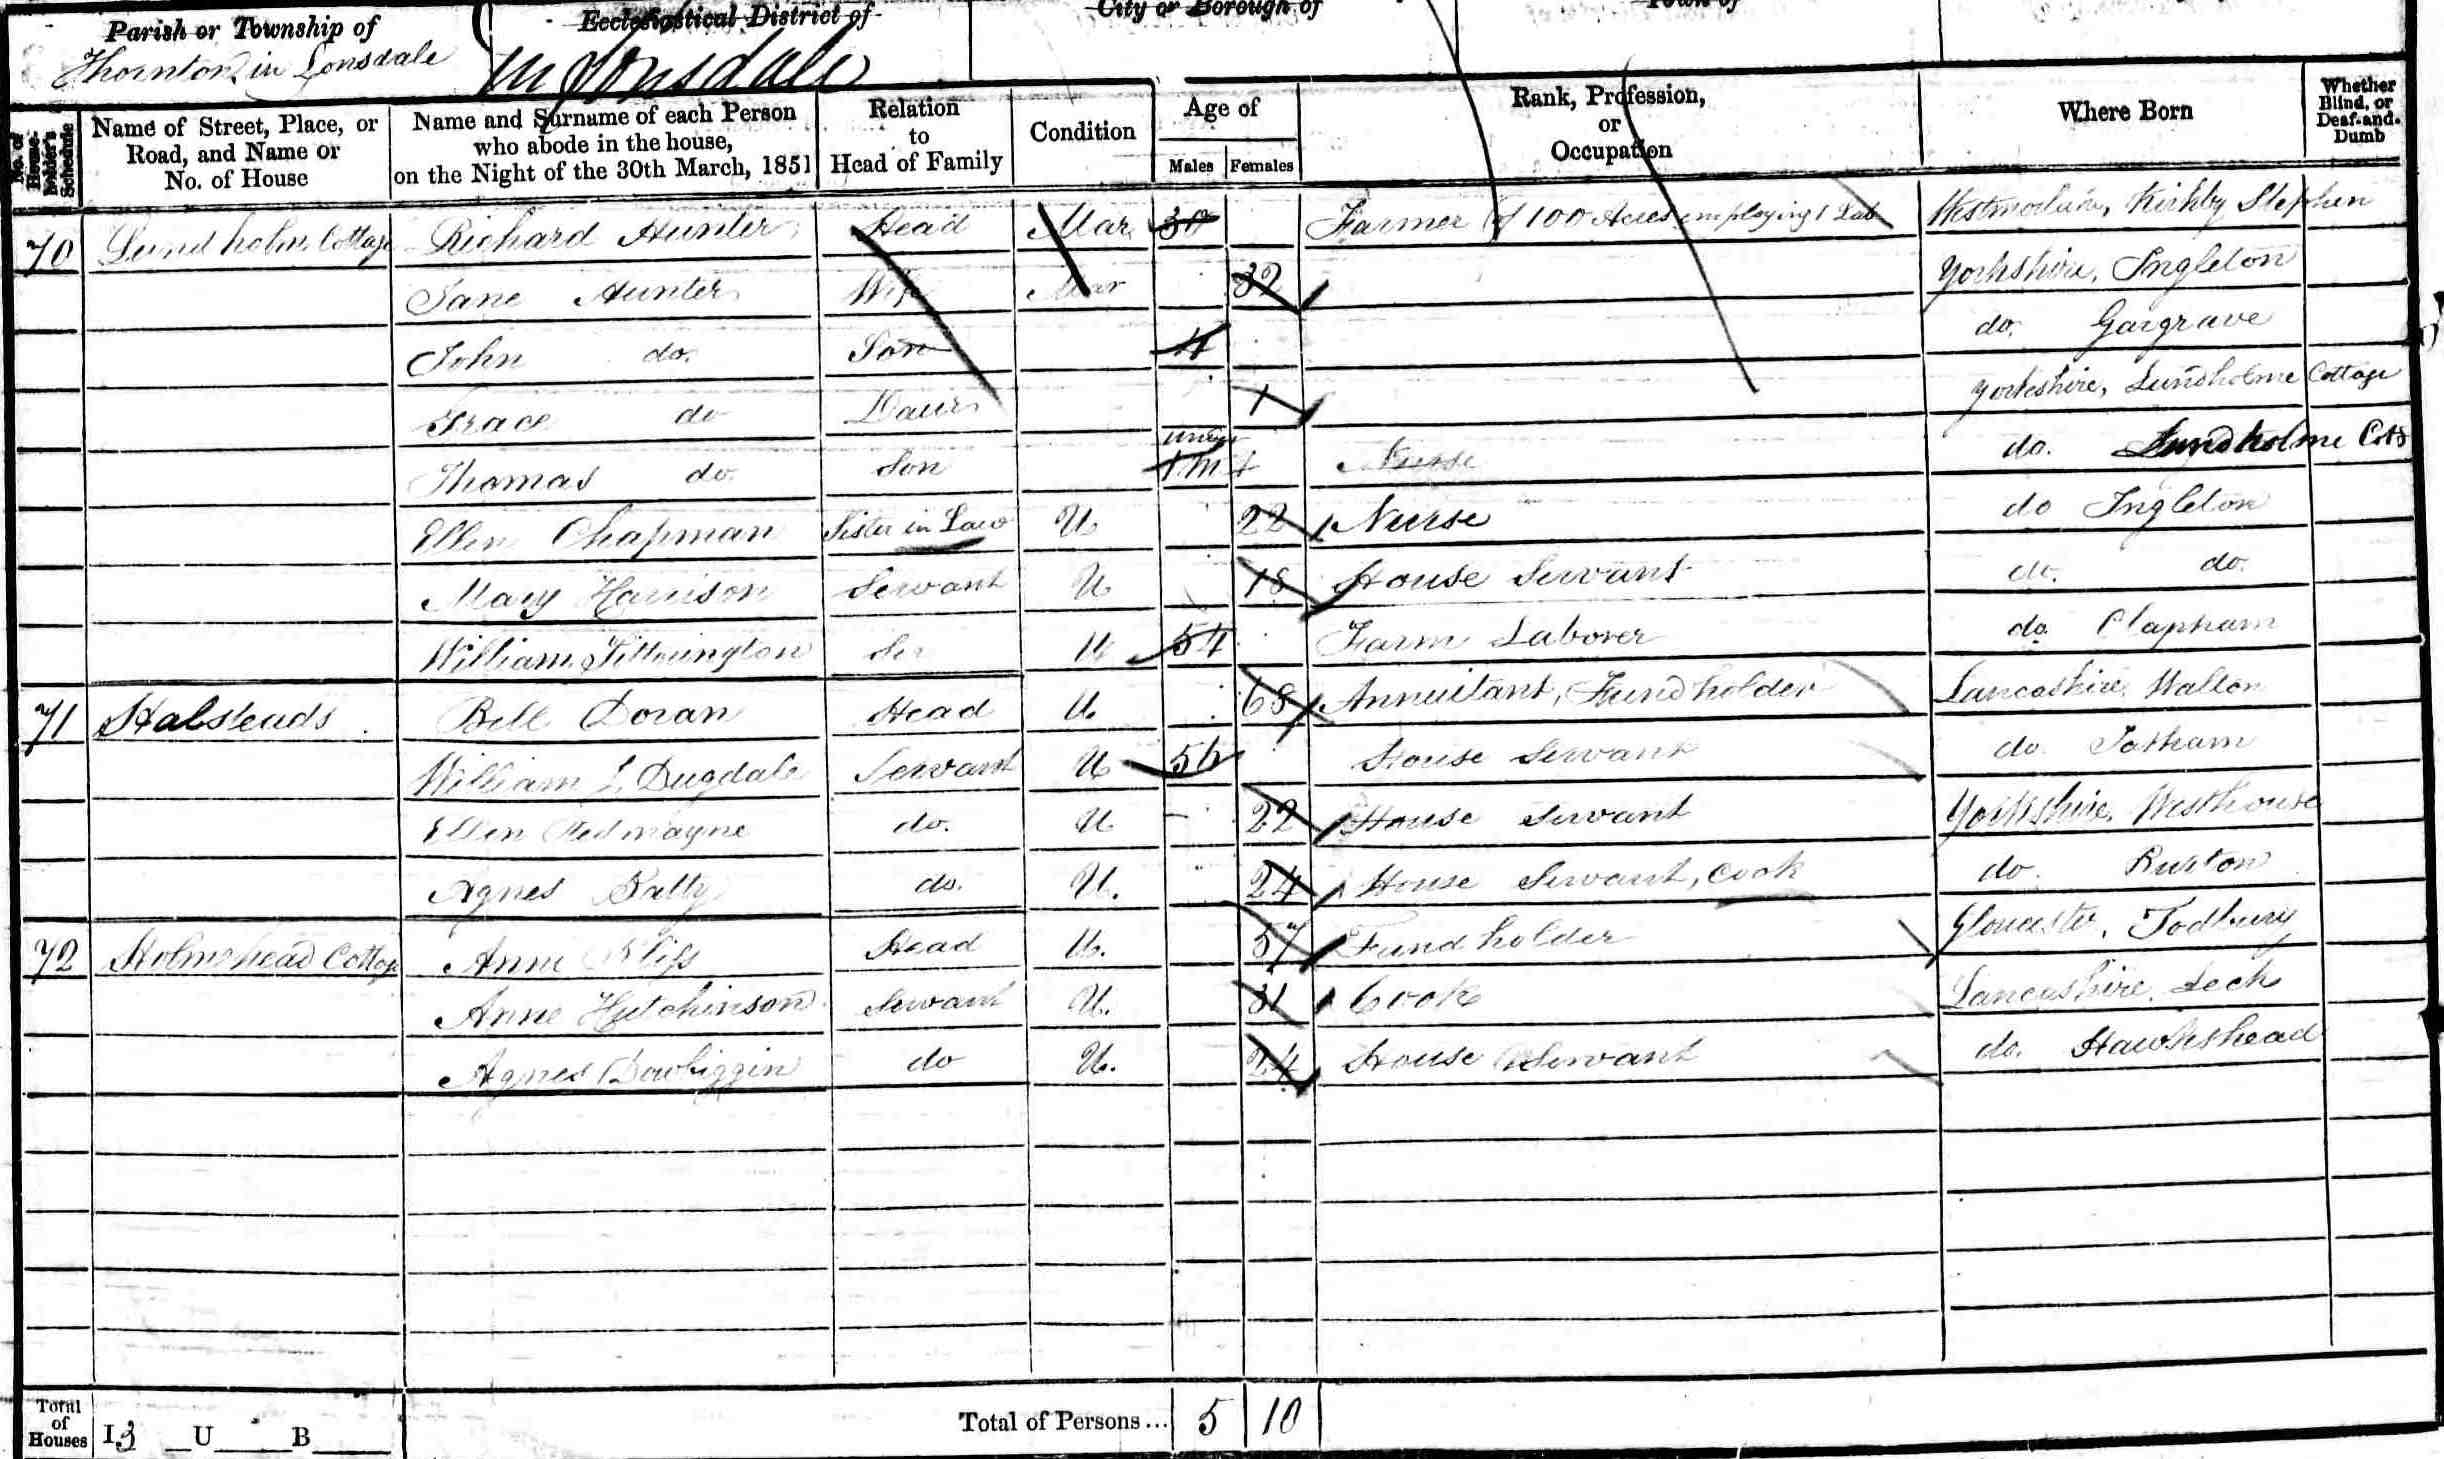 Parish or Township of Ecclesiastical District of City or Borough of Town of
Thornton in Lonsdale in Lonsdale
No. of House-holder's Schedule
Name of Street, Place, or Road, and Name or No. of House
Name and Surname of each Person who abode in the house, on the Night of the 30th March, 1851
Relation to Head of Family
Condition
Age of
Males Females
Rank, Profession, or Occupation
Where Born
Whether Blind, or Deaf-and-Dumb
70 Lundholm Cottage Richard Hunter Head Mar 30 Farmer of 100 Acres employing 1 Lab Westmorland, Kirkby Stephen
Jane Hunter Wife Mar 32 Yorkshire, Ingleton
John do. Son 4 do. Gargrave
Grace do Daur 1 Yorkshire, Lundholme Cottage
Thomas do. Son under 1 m Nurse do. Lundholme Cott
Ellen Chapman Sister in Law U 22 Nurse do Ingleton
Mary Harrison Servant U 18 House Servant do. do.
William Titterington Ser U 54 Farm Laborer do. Clapham
71 Halsteads Bell Doran Head U 68 Annuitant, Fundholder Lancashire Walton
William L. Dugdale Servant U 56 House Servant do. Tatham
Ellen Redmayne do. U 22 House Servant Yorkshire, Westhouse
Agnes Batty do. U. 24 House Servant, Cook do. Burton
72 Holmehead Cottage Anne Bliss Head U. 57 Fundholder Gloucester, Todbury
Anne Hutchinson Servant U. 31 Cook Lancashire, Leck
Agnes Dowbiggin do U. 24 House Servant do. Hawkshead
Total of Houses I 3 U B Total of Persons... 5 10